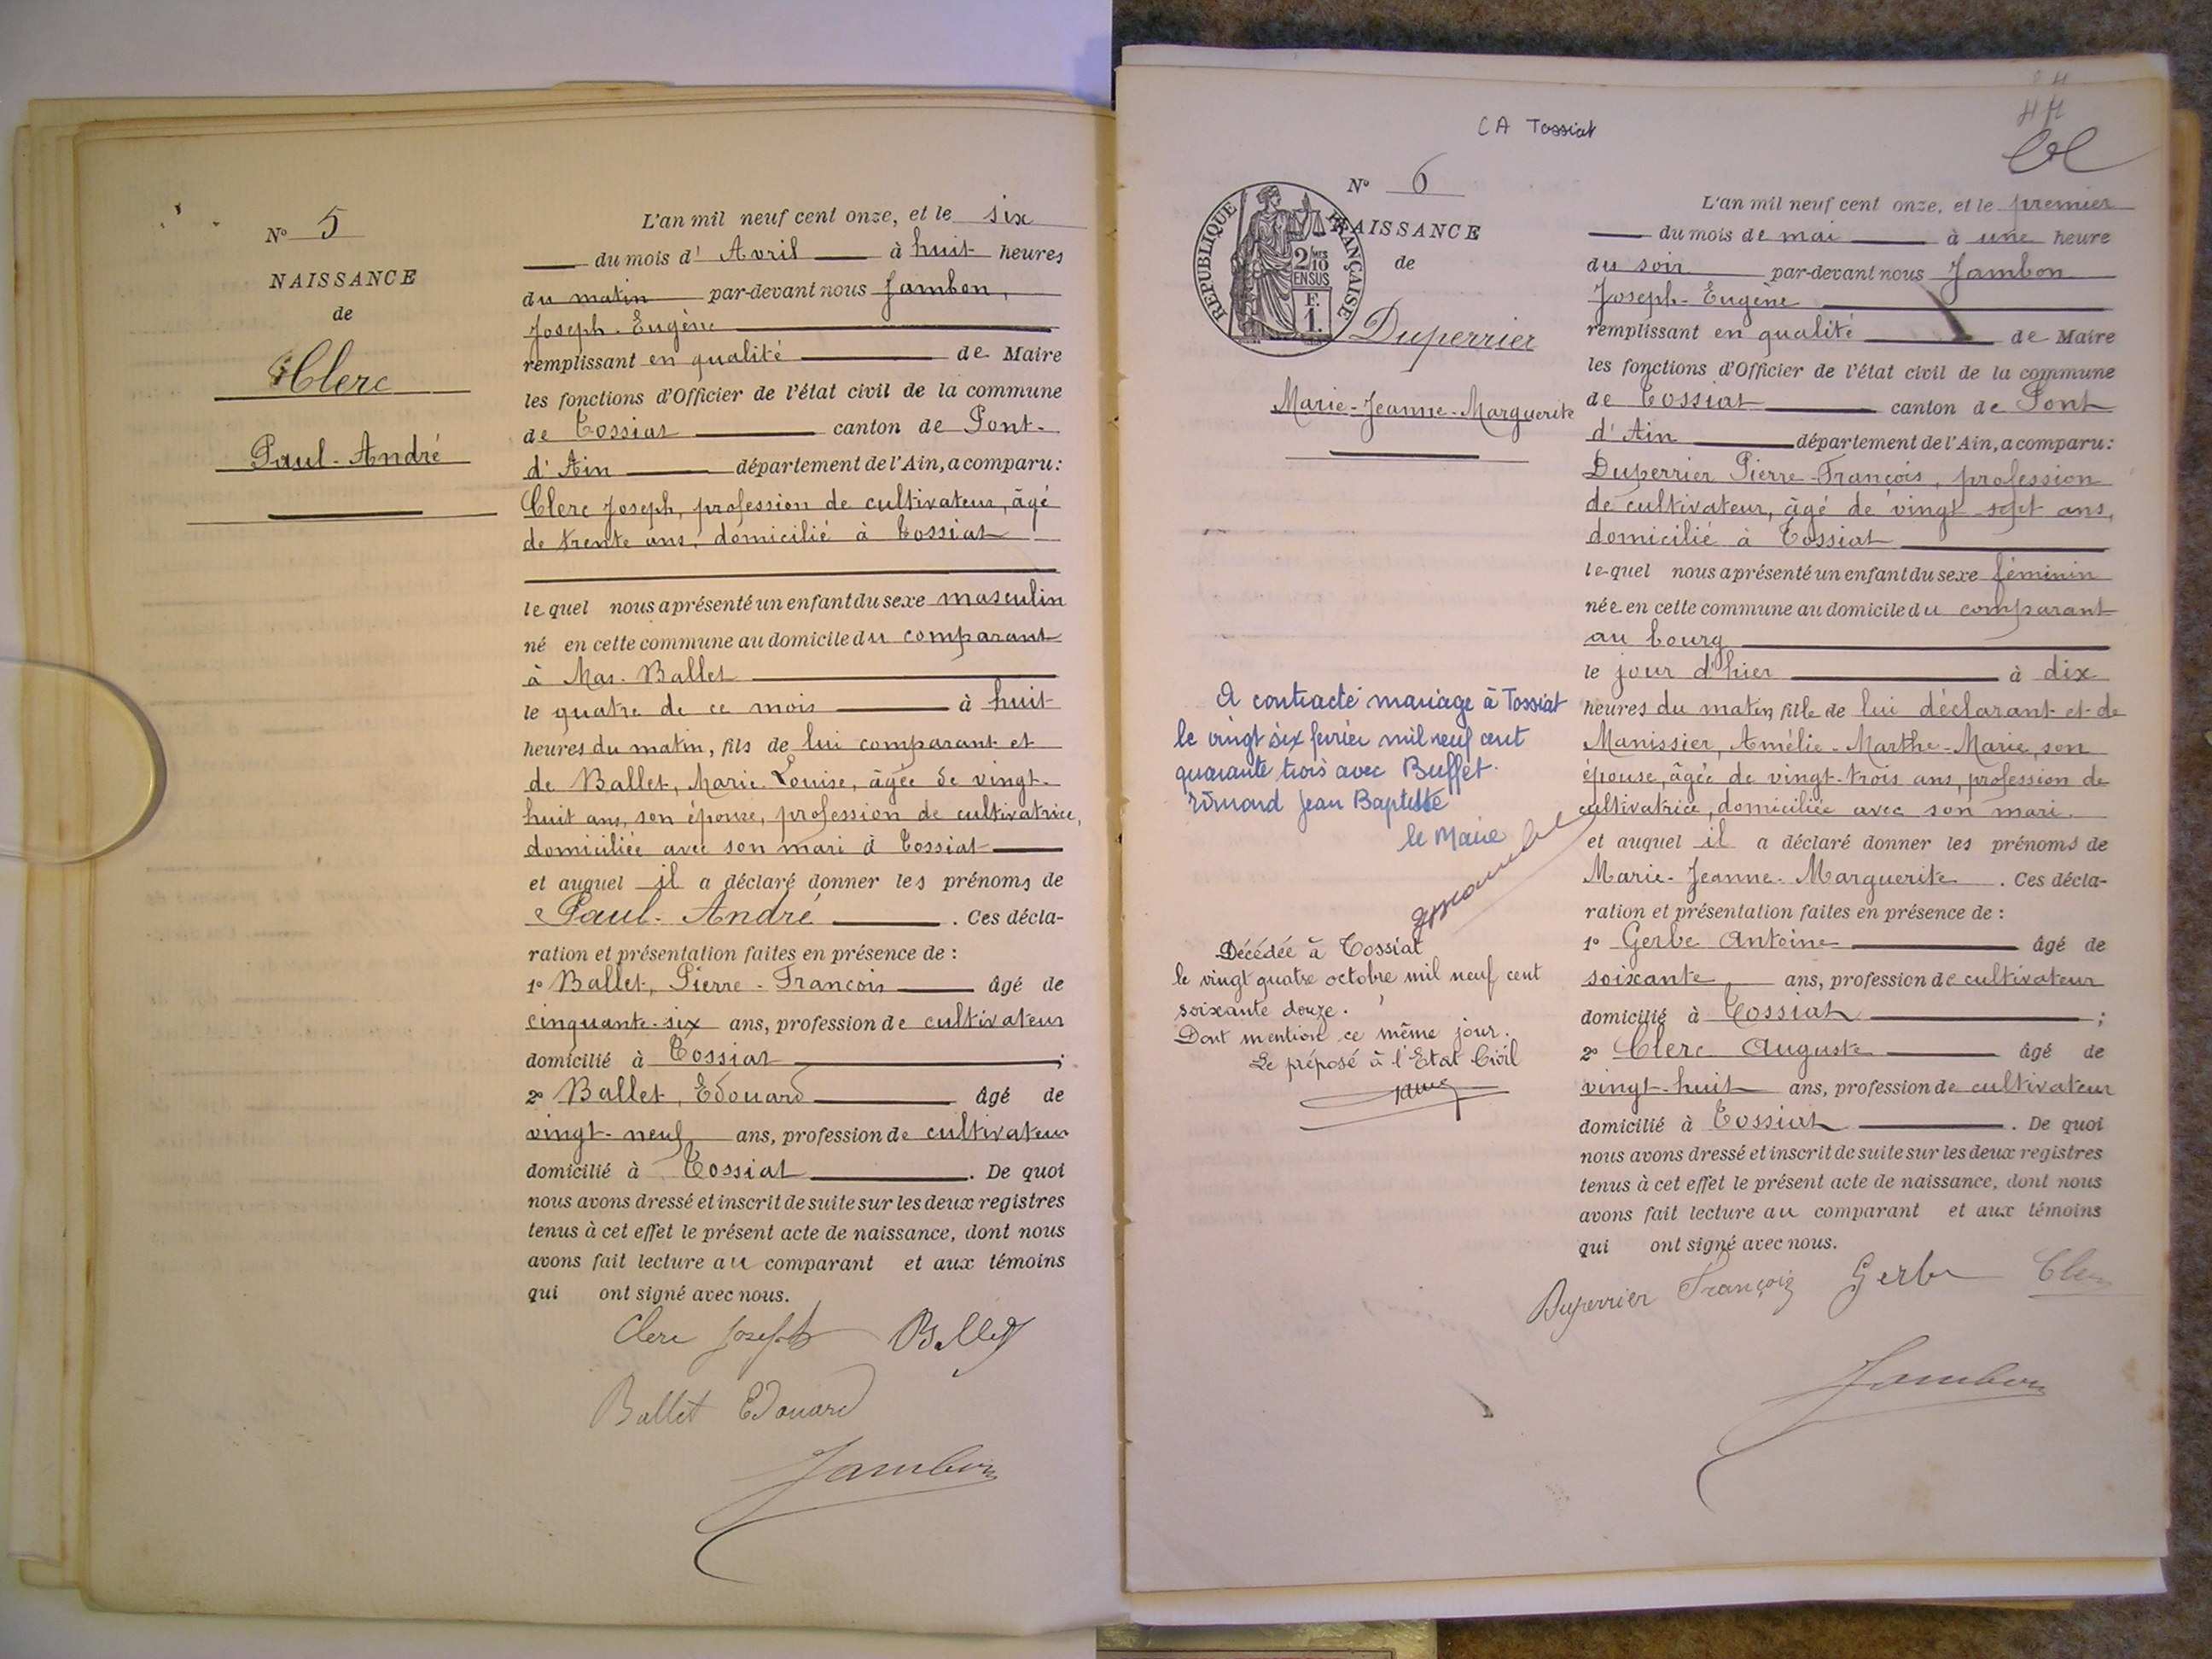 N° 5
NAISSANCE
de
Clerc
Paul-André
L'an mil neuf cent onze, et le six
du mois d'Avril à huit heures
du matin par-devant nous Jambon,
Joseph-Eugène
remplissant en qualité de Maire
les fonctions d'Officier de l'état civil de la commune
de Tossiat canton de Pont-
d'Ain département de l'Ain, a comparu :
Clerc Joseph, profession de cultivateur, âgé
de trente ans, domicilié à Tossiat
lequel nous a présenté un enfant du sexe masculin
né en cette commune au domicile du comparant
à Mas-Ballet
le quatre de ce mois à huit
heures du matin, fils de lui comparant et
de Ballet, Marie-Louise, âgée de vingt-
huit ans, son épouse, profession de cultivatrice,
domiciliée avec son mari à Tossiat
et auquel il a déclaré donner les prénoms de
Paul-André . Ces décla-
ration et présentation faites en présence de :
1° Ballet, Pierre-François âgé de
cinquante-six ans, profession de cultivateur
domicilié à Tossiat ;
2° Ballet, Edouard âgé de
vingt-neuf ans, profession de cultivateur
domicilié à Tossiat . De quoi
nous avons dressé et inscrit de suite sur les deux registres
tenus à cet effet le présent acte de naissance, dont nous
avons fait lecture au comparant et aux témoins
qui ont signé avec nous.
Clerc Joseph Ballet
Ballet Edouard
Jambon
CA Tossiat
N° 6
NAISSANCE
de
REPUBLIQUE FRANÇAISE
2/10
EN SUS
F.
1.
Duperrier
Marie-Jeanne-Marguerite
A contracté mariage à Tossiat
le vingt six février mil neuf cent
quarante trois avec Buffet-
Jean Baptiste
le Maire
Décédée à Tossiat
le vingt quatre octobre mil neuf cent
soixante douze.
Dont mention ce même jour.
Le préposé à l'Etat Civil
L'an mil neuf cent onze, et le premier
du mois de mai à une heure
du soir par-devant nous Jambon
Joseph-Eugène
remplissant en qualité de Maire
les fonctions d'Officier de l'état civil de la commune
de Tossiat canton de Pont
d'Ain département de l'Ain, a comparu :
Duperrier Pierre-François, profession
de cultivateur, âgé de vingt-sept ans,
domicilié à Tossiat
lequel nous a présenté un enfant du sexe féminin
née en cette commune au domicile du comparant
au bourg
le jour d'hier à dix
heures du matin, fille de lui déclarant et de
Manissier, Amélie-Marthe-Marie, son
épouse, âgée de vingt-trois ans, profession de
cultivatrice, domiciliée avec son mari.
et auquel il a déclaré donner les prénoms de
Marie-Jeanne-Marguerite . Ces décla-
ration et présentation faites en présence de :
1° Gerbe Antoine âgé de
soixante ans, profession de cultivateur
domicilié à Tossiat ;
2° Clerc Auguste âgé de
vingt-huit ans, profession de cultivateur
domicilié à Tossiat . De quoi
nous avons dressé et inscrit de suite sur les deux registres
tenus à cet effet le présent acte de naissance, dont nous
avons fait lecture au comparant et aux témoins
qui ont signé avec nous.
Duperrier François Gerbe Clerc
Jambon